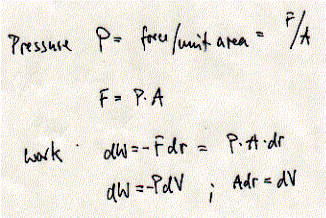 Pressure P = force/unit area = F/A
F = P·A
work dW = -Fdr = P·A·dr
dW = -PdV ; Adr = dV